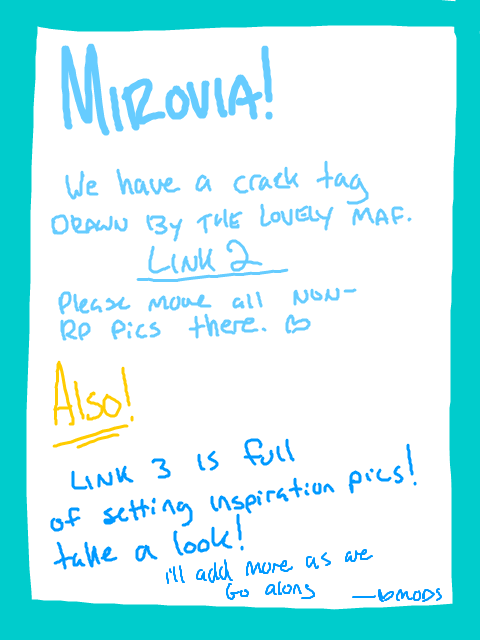 MIROVIA!
We have a crack tag
DRAWN BY THE LOVELY MAF.
LINK 2
Please move all NON-
RP pics there. ♡
Also!
LINK 3 is full
of setting inspiration pics!
take a look!
i'll add more as we
Go along —bmods